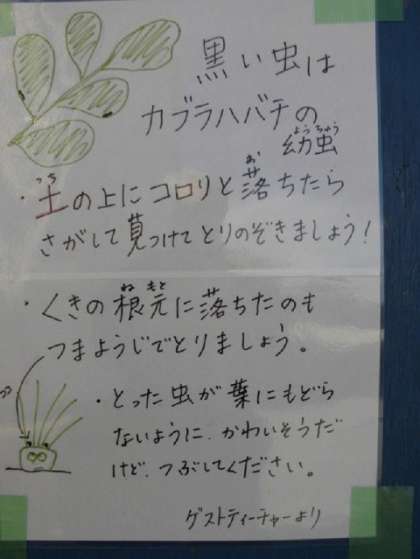 黒い虫は
カブラハバチの
幼虫
ようちゅう
・土の上にコロリと落ちたら
つち
お
さがして見つけてとりのぞきましょう!
・くきの根元に落ちたのも
ねもと
つまようじでとりましょう。
・とった虫が葉にもどら
ないように、かわいそうだ
けど、つぶしてください。
ゲストティーチャーより